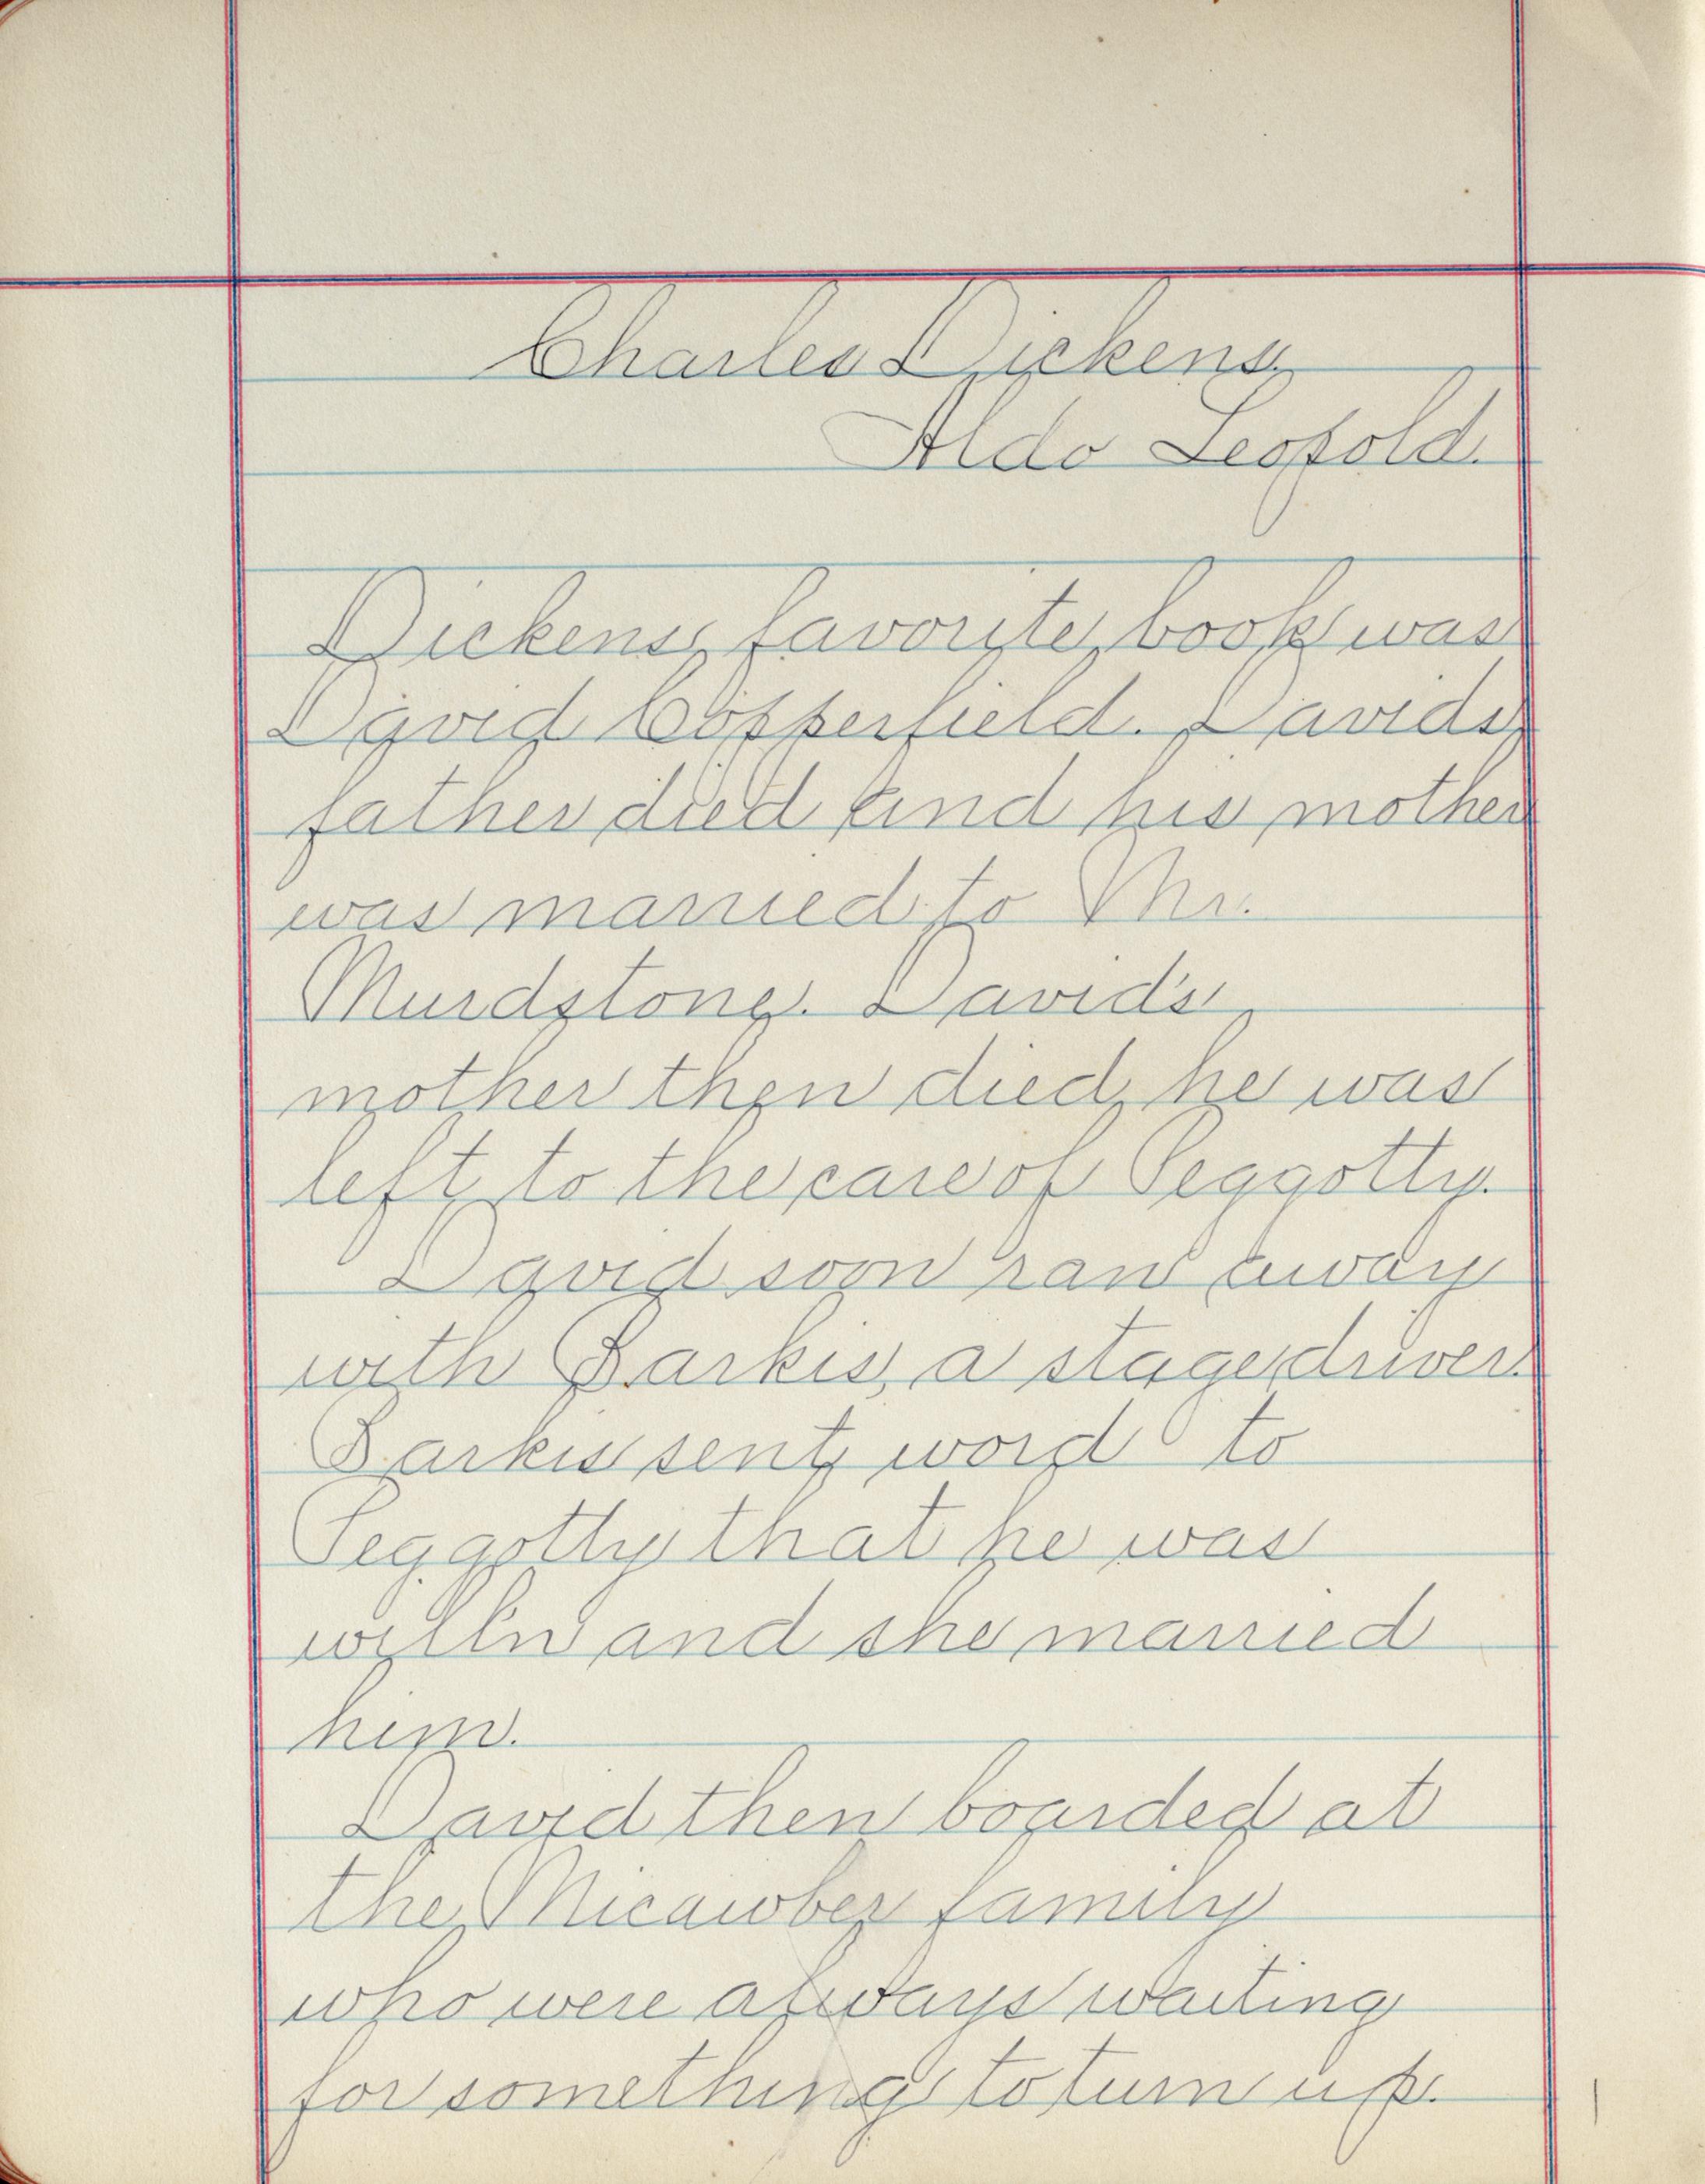 Charles Dickens.
Aldo Leopold.
Dickens favorite book was
David Copperfield. Davids
father died and his mother
was married to Mr.
Murdstone. David's
mother then died he was
left to the care of Peggotty.
David soon ran away
with Barkis, a stage driver.
Barkis sent word to
Peggotty that he was
willin and she married
him.
David then boarded at
the Micawber family
who were always waiting
for something to turn up.